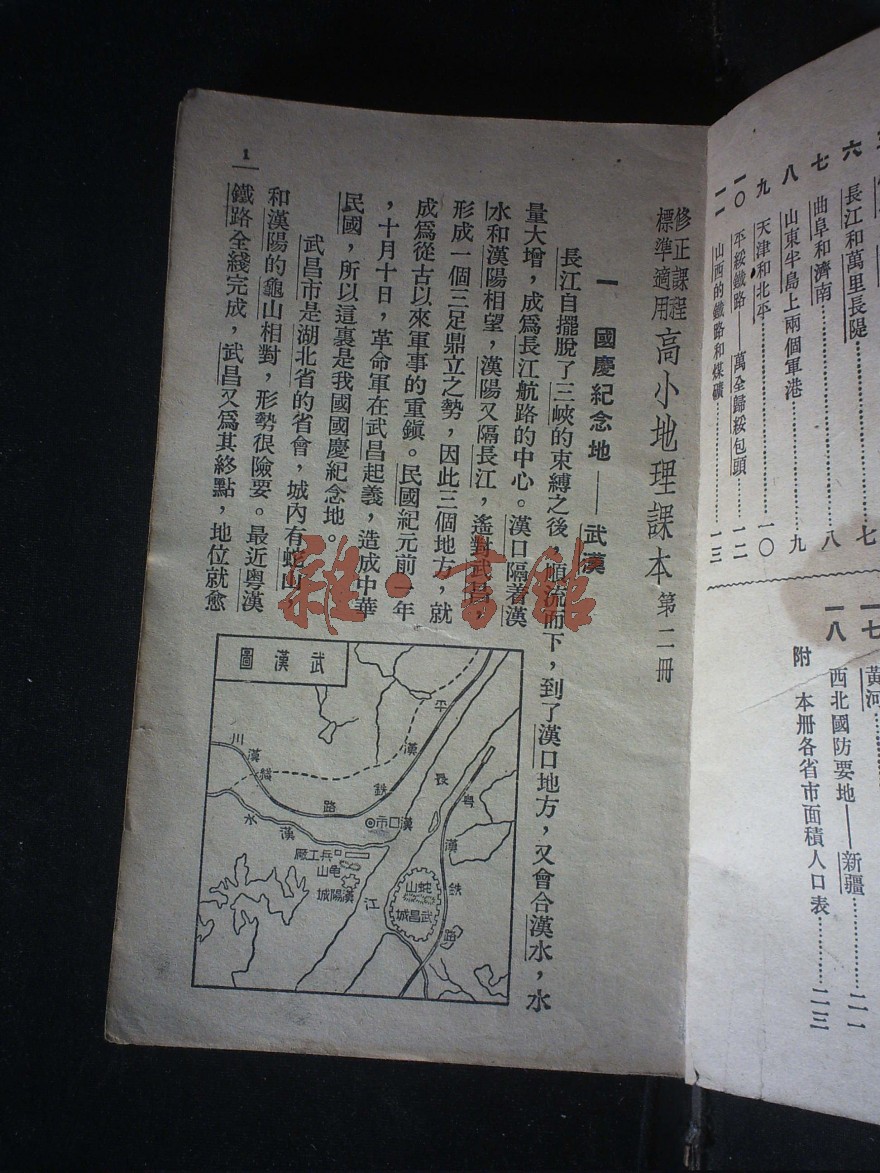 六　長江和萬里長隄………七
七　曲阜和濟南………八
八　山東半島上兩個軍港………九
九　天津和北平………一〇
一〇　平綏鐵路——萬全歸綏包頭………一二
一一　山西的鐵路和煤礦………一三
一七　黃河
一八　西北國防要地——新疆………二一
附　本冊各省市面積人口表………二三
修正課程標準適用　高小地理課本　第二冊
一　國慶紀念地——武漢
長江自擺脫了三峽的束縛之後，順流而下，到了漢口地方，又會合漢水，水
量大增，成爲長江航路的中心。漢口隔着漢
水和漢陽相望，漢陽又隔長江，遙對武昌，
形成一個三足鼎立之勢，因此三個地方，就
成爲從古以來軍事的重鎭。民國紀元前一年
，十月十日，革命軍在武昌起義，造成中華
民國，所以這裏是我國國慶紀念地。
武昌市是湖北省的省會，城內有蛇山，
和漢陽的龜山相對，形勢很險要。最近粤漢
鐵路全綫完成，武昌又爲其終點，地位就愈
1
武漢圖
平漢鐵路
川漢綫
漢水
漢口市
兵工廠
龜山
漢陽城
長江
粤漢鐵路
蛇山
武昌城
雜·書館